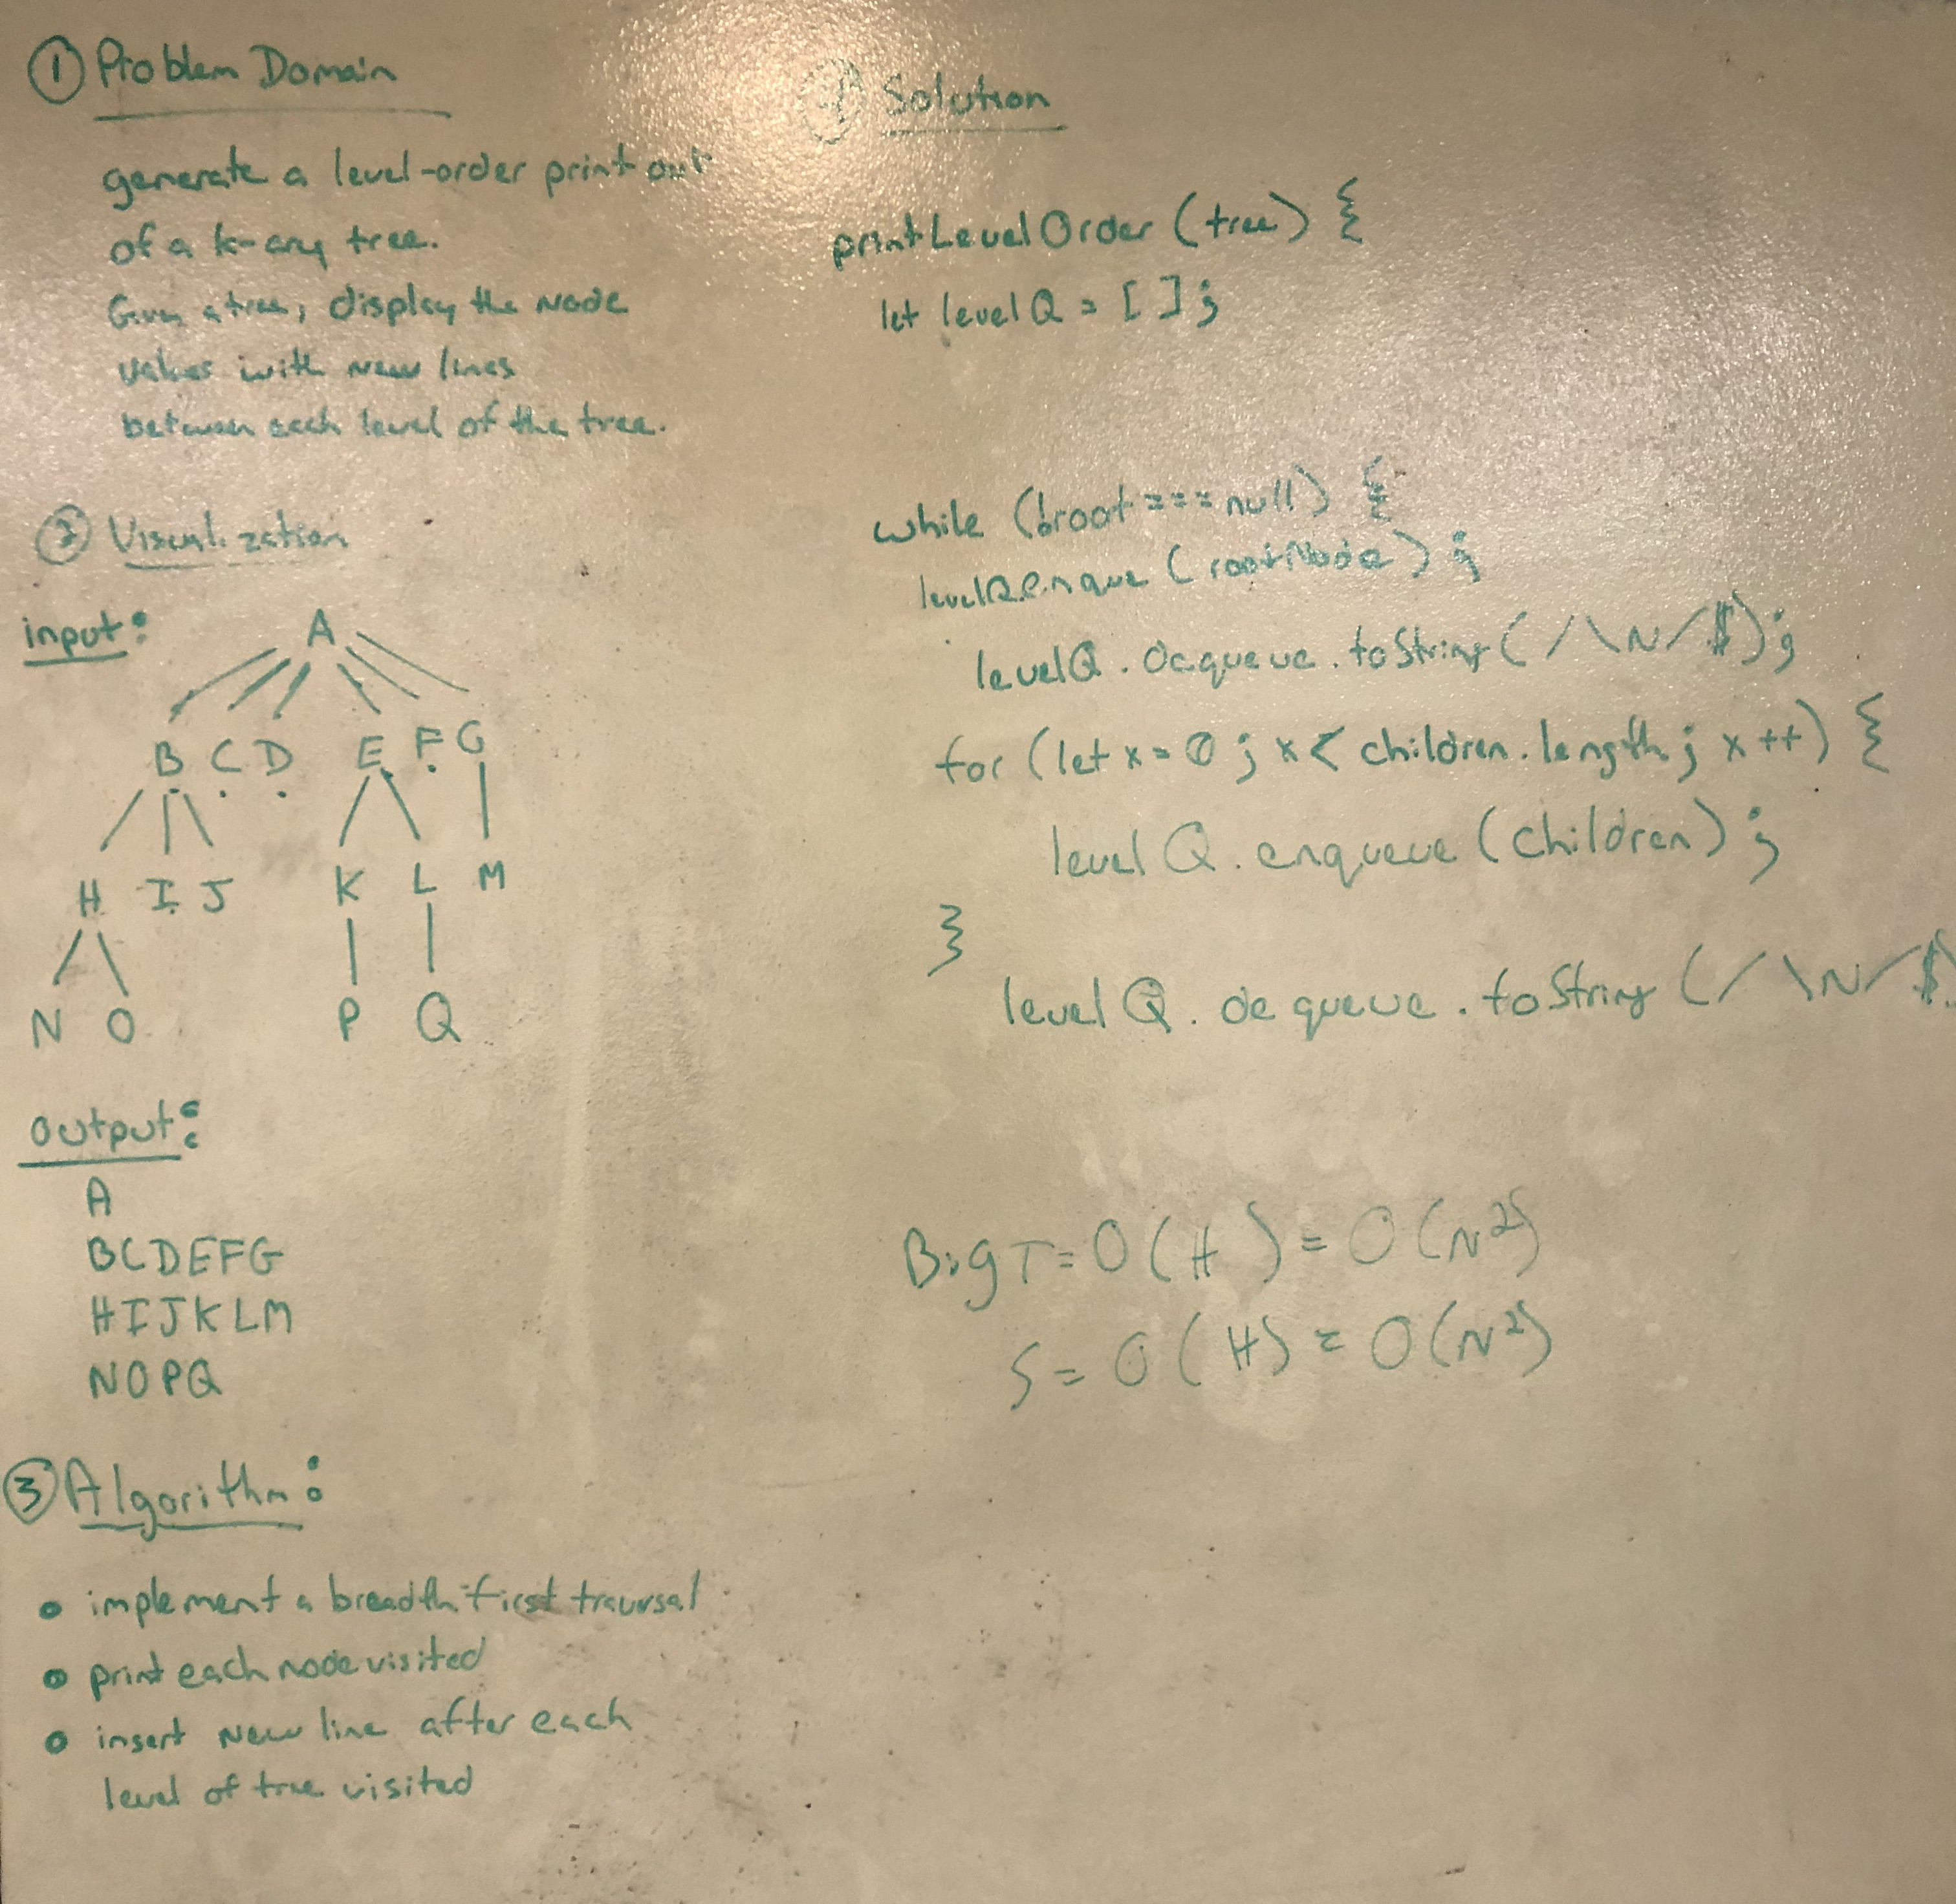 ① Problem Domain
generate a level-order print out
of a k-ary tree.
Given a tree, display the Node
values with new lines
between each level of the tree.
② Visualization
input:
A
B C D E F G
H I J K L M
N O P Q
Output:
A
BCDEFG
HIJKLM
NOPQ
③ Algorithm:
• implement a breadth-first traversal
• print each node visited
• insert new line after each
level of tree visited
④ Solution
printLevelOrder (tree) {
let levelQ = [ ];
while (!root === null) {
levelQ.enque (rootNode);
levelQ.dequeue.toString(/\N/$);
for (let x = 0; x < children.length; x++) {
levelQ.enqueue(children);
}
levelQ.dequeue.toString(/\N/$
Big T = O(H) = O(N²)
S = O(H) = O(N²)